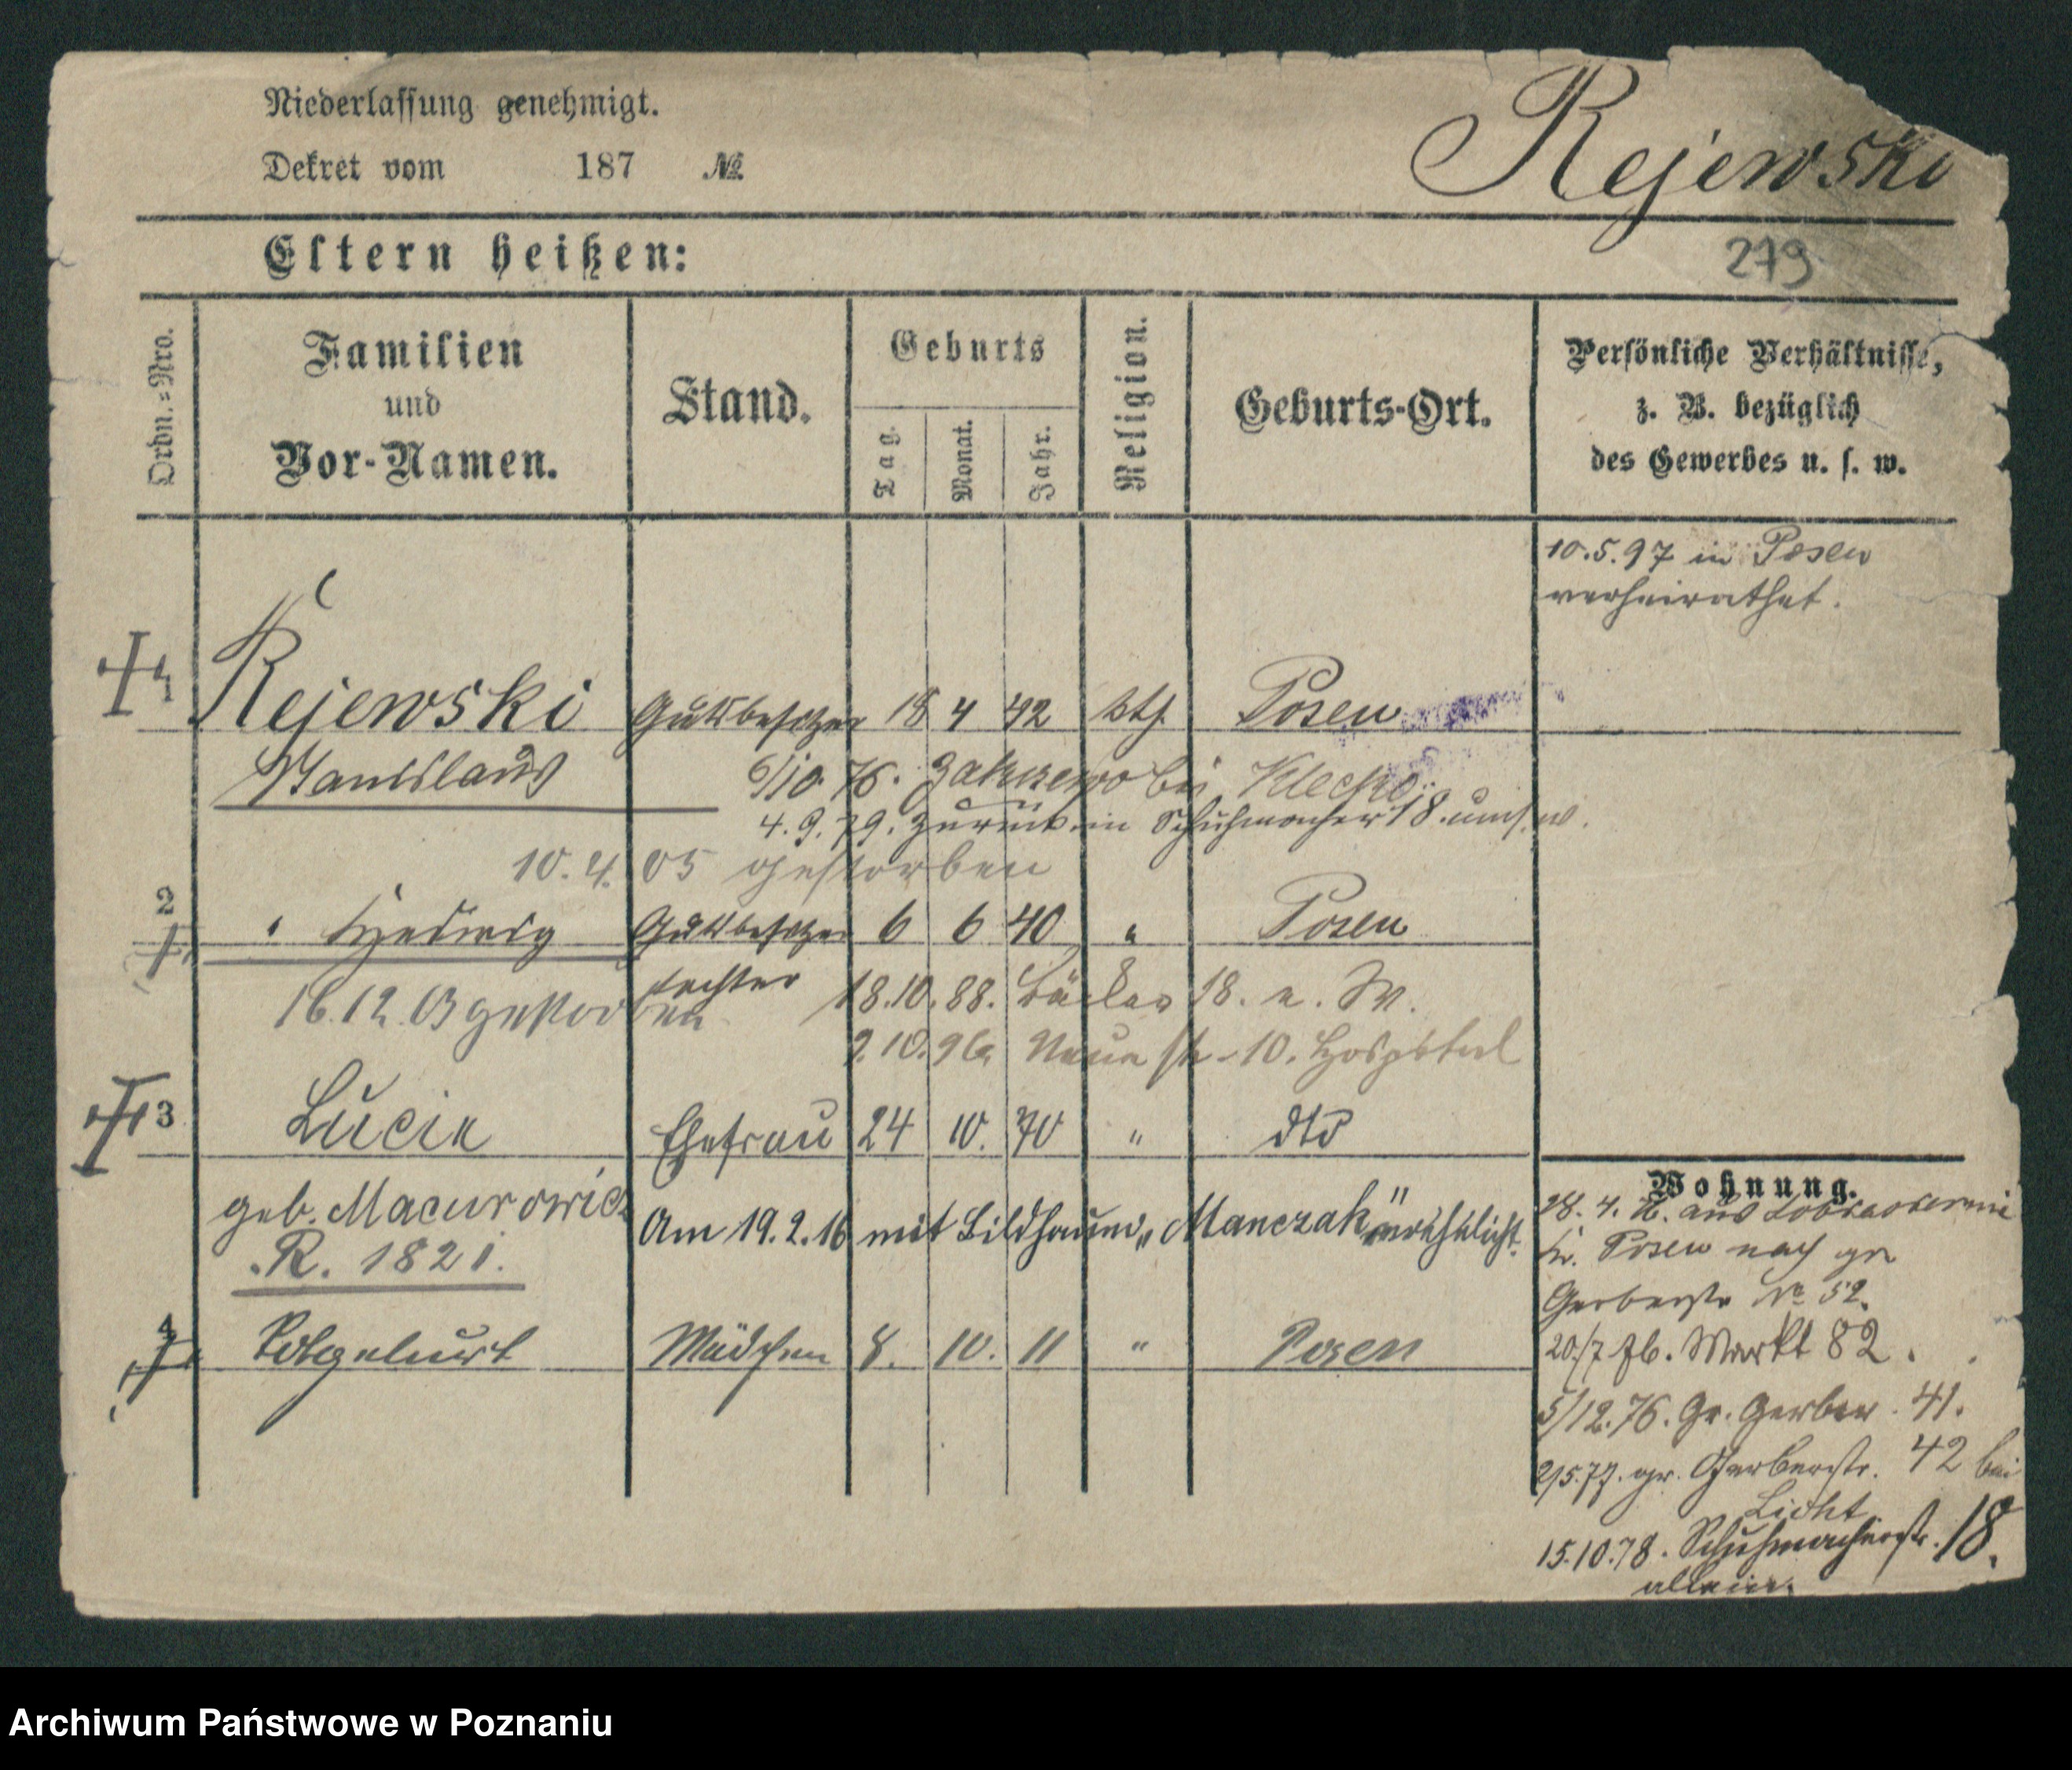 Niederlassung genehmigt.
Dekret vom 187 №
Rejewski
Eltern heißen:
279
Ordn.=Nro.
Familien
und
Vor-Namen.
Stand.
Geburts
Tag.
Monat.
Jahr.
Religion.
Geburts-Ort.
Persönliche Verhältnisse,
z. B. bezüglich
des Gewerbes u. s. w.
10.5.97 in Posen
verheirathet.
1 Rejewski Gutsbesitzer 18 4 42 kth. Posen
Stanislaus 6/10. 76. bei Klecko
4.9.79. zurück in Schuhmacher 18.
10.4.05 gestorben
2 " Hedwig Gutsbesitzer 6 6 40 " Posen
tochter 18.10.88. Bäcker 18. n. W.
16.12.03 gestorben
2.10.96. Neue str. 10. Hospital
3 Lucie Ehefrau 24 10. 70 " dto
geb. Macurowicz
R. 1821.
Am 19.2.16 mit Bildhauer „Manczak" verehelicht.
4 Todtgeburt Mädchen 8. 10. 11 " Posen
Wohnung.
28. 4. aus
Kr. Posen nach gr
Gerberstr № 52.
20/7 76. Markt 82.
5/12.76. Gr. Gerber. 41.
2/5.77. gr. Gerberstr. 42 bei
Licht
15.10.78. Schuhmacherstr. 18.
allein.
Archiwum Państwowe w Poznaniu